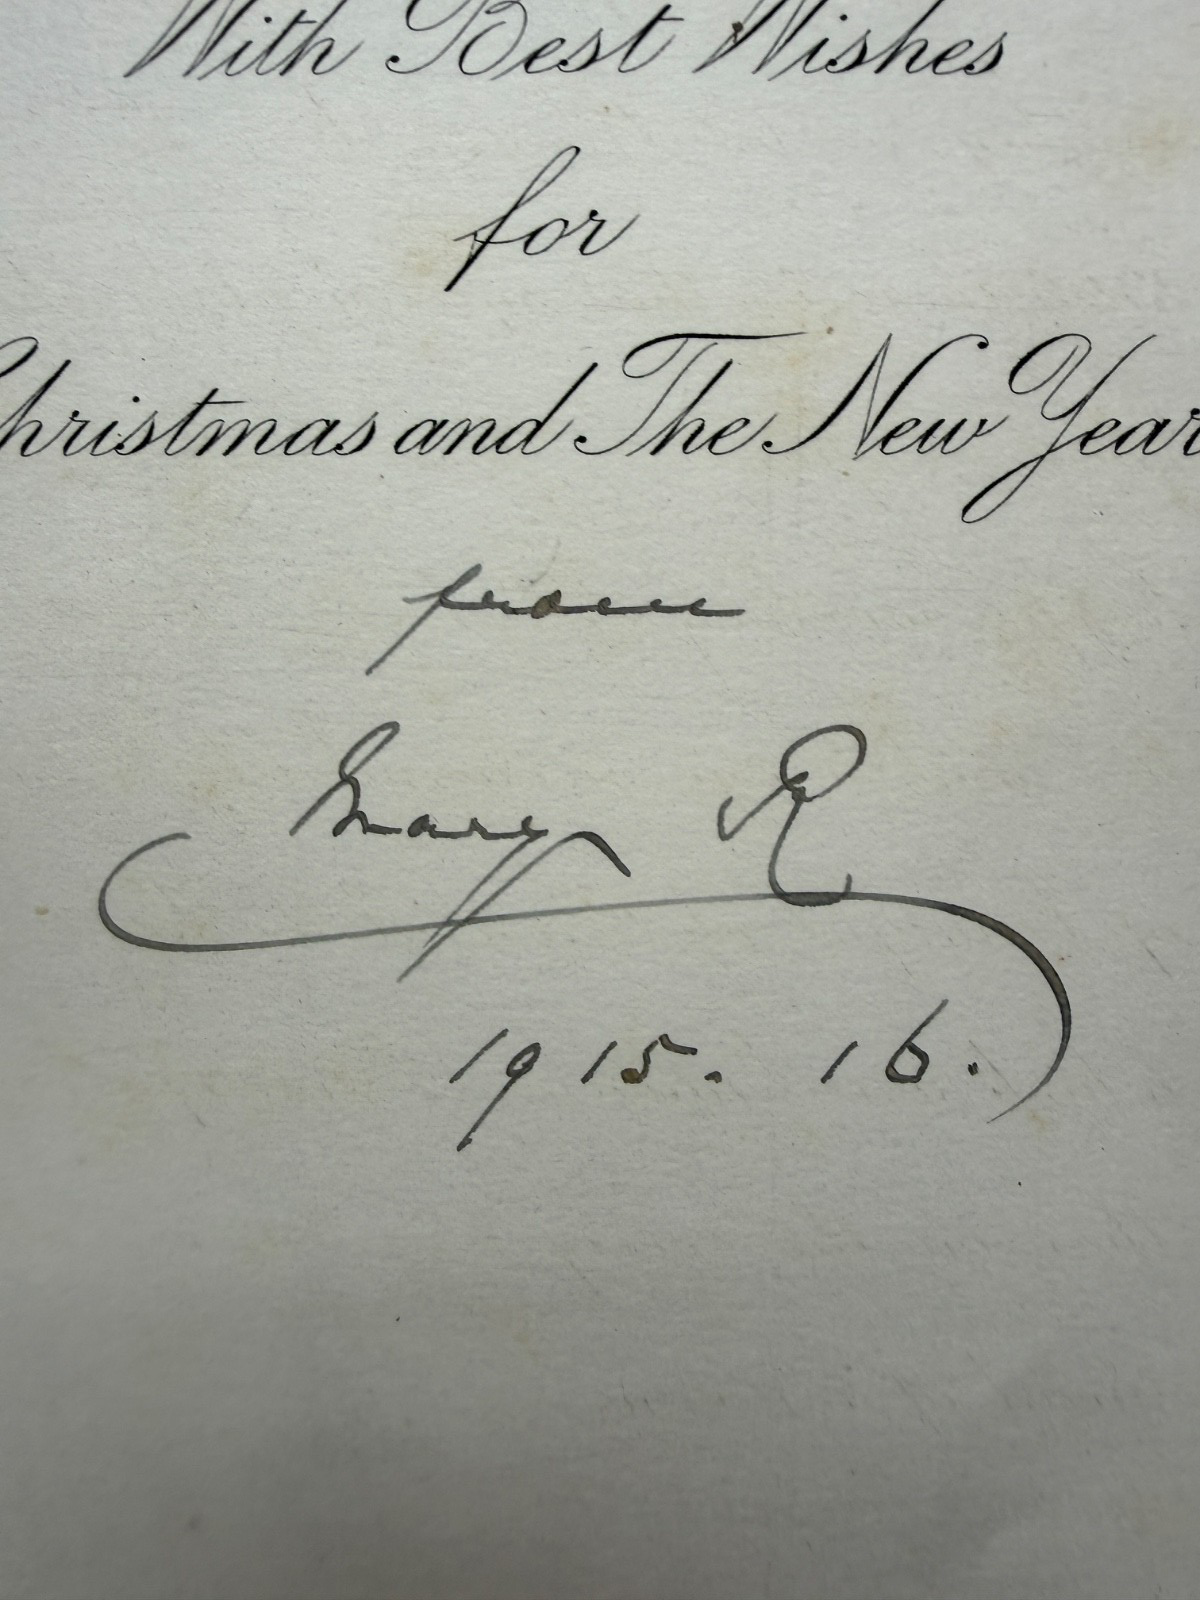 With Best Wishes
for
Christmas and The New Year
from
Mary R
1915. 16.